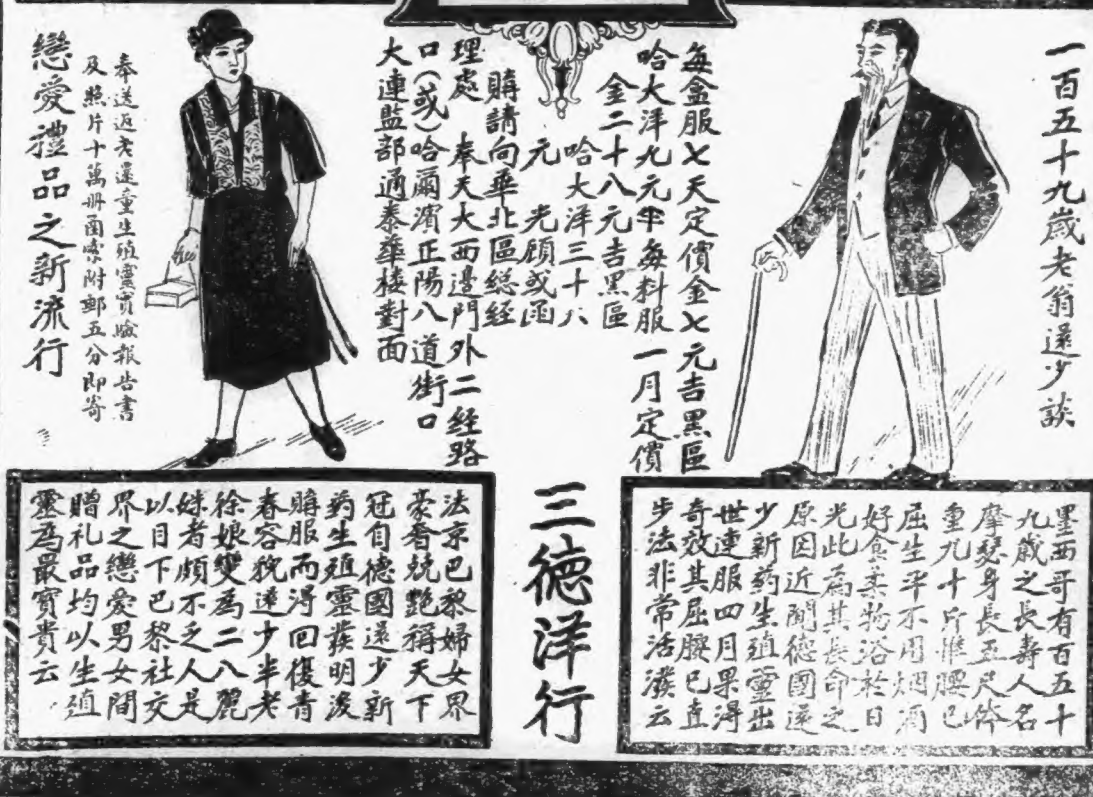 一百五十九歲老翁還少談
每盒服七天定價金七元吉黑區
哈大洋九元半每料服一月定價
金二十八元吉黑區
哈大洋三十八
元 光顧或函
購請向華北區總經
理處 奉天大西邊門外二经路
口(或)哈爾濱正陽八道街口
大連監部通泰華楼對面
奉送返老還童生殖靈實驗報告書
及照片十萬册函索附郵五分即寄
戀愛禮品之新流行
墨西哥有百五十
九歲之長壽人名
摩瑟身長五尺体
重九十斤惟腰已
屈生平不用烟酒
好食柔物浴於日
光此為其長命之
原因近聞德國還
少新药生殖靈出
世連服四月果得
奇效其屈腰已直
步法非常活潑云
三德洋行
法京巴黎婦女界
豪奢兢艷稱天下
冠自德國還少新
药生殖靈發明後
購服而得回復青
春容貌達少半老
徐娘變為二八麗
姝者頗不乏人是
以目下巴黎社交
界之戀愛男女間
贈礼品均以生殖
靈為最寶貴云